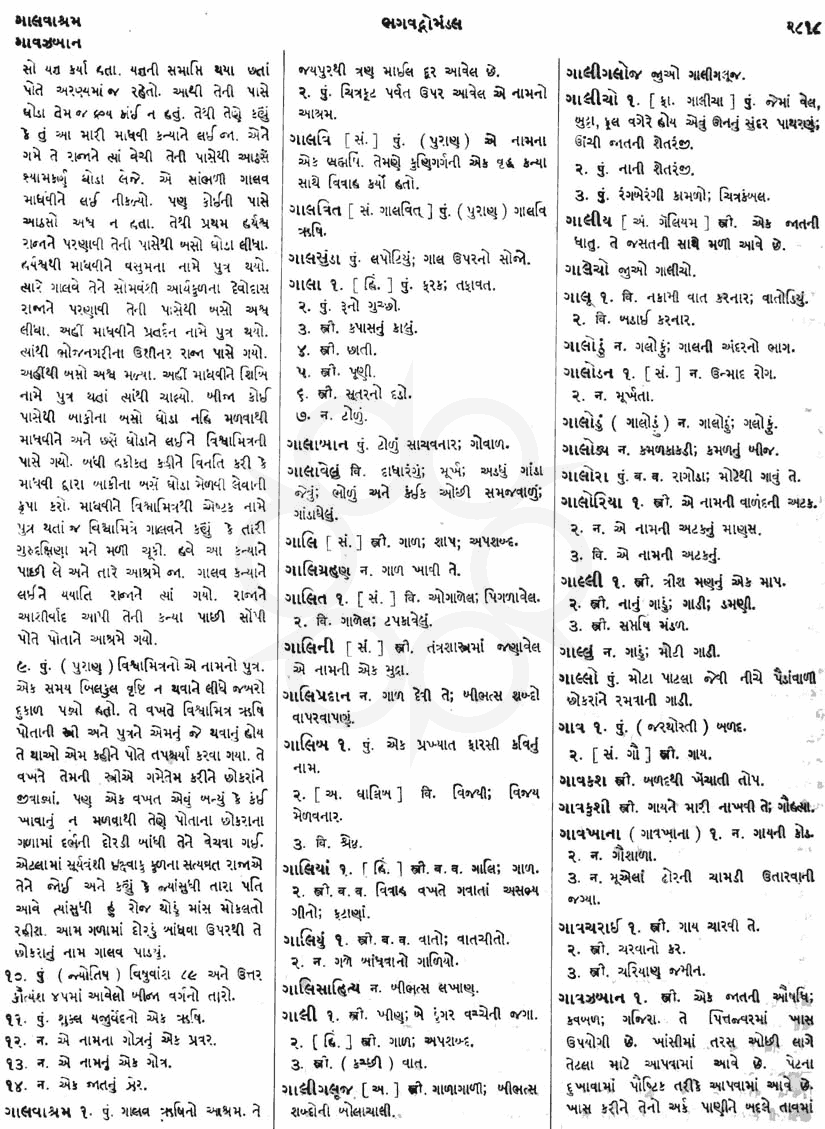 ગાલવાશ્રમ
ગાવઝબાન
ભગવદ્ગોમંડલ
૨૮૧૮
સો યજ્ઞ કર્યા હતા. યજ્ઞની સમાપ્તિ થયા છતાં
પોતે અરણ્યમાં જ રહેતો. આથી તેની પાસે
ઘોડા તેમ જ દ્રવ્ય કાંઈ ન હતું. તેથી તેણે કહ્યું
કે તું આ મારી માધવી કન્યાને લઈ જા. એને
ગમે તે રાજાને ત્યાં વેચી તેની પાસેથી આઠસેં
શ્યામકર્ણ ઘોડા લેજે. એ સાંભળી ગાલવ
માધવીને લઈ નીકળ્યો. પણ કોઈની પાસે
આઠસો અશ્વ ન હતા. તેથી પ્રથમ હર્યશ્વ
રાજાને પરણાવી તેની પાસેથી બસો ઘોડા લીધા.
હર્યશ્વથી માધવીને વસુમના નામે પુત્ર થયો.
ત્યારે ગાલવે તેને સોમવંશી આર્યકુળના દેવોદાસ
રાજાને પરણાવી તેની પાસેથી બસો અશ્વ
લીધા. અહીં માધવીને પ્રતર્દન નામે પુત્ર થયો.
ત્યાંથી ભોજનગરીના ઉશીનર રાજા પાસે ગયો.
અહીંથી બસો અશ્વ મળ્યા. અહીં માધવીને શિબિ
નામે પુત્ર થતાં ત્યાંથી ચાલ્યો. બીજા કોઈ
પાસેથી બાકીના બસો ઘોડા નહિ મળવાથી
માધવીને અને છસેં ઘોડાને લઈને વિશ્વામિત્રની
પાસે ગયો. બધી હકીકત કહીને વિનતિ કરી કે
માધવી દ્વારા બાકીના બસેં ઘોડા મેળવી લેવાની
કૃપા કરો. માધવીને વિશ્વામિત્રથી એષ્ટક નામે
પુત્ર થતાં જ વિશ્વામિત્રે ગાલવને કહ્યું કે તારી
ગુરુદક્ષિણા મને મળી ચૂકી. હવે આ કન્યાને
પાછી લે અને તારે આશ્રમે જા. ગાલવ કન્યાને
લઈને યયાતિ રાજાને ત્યાં ગયો. રાજાને
આશીર્વાદ આપી તેની કન્યા પાછી સોંપી
પોતે પોતાને આશ્રમે ગયો.
૯. પું. ( પુરાણ ) વિશ્વામિત્રનો એ નામનો પુત્ર.
એક સમય બિલકુલ વૃષ્ટિ ન થવાને લીધે જબરો
દુકાળ પડ્યો હતો. તે વખતે વિશ્વામિત્ર ઋષિ
પોતાની સ્ત્રી અને પુત્રને એમનું જે થવાનું હોય
તે થાઓ એમ કહીને પોતે તપશ્ચર્યા કરવા ગયા. તે
વખતે તેમની સ્ત્રીએ ગમેતેમ કરીને છોકરાંને
જીવાડ્યાં. પણ એક વખત એવું બન્યું કે કંઈ
ખાવાનું ન મળવાથી તેણે પોતાના છોકરાના
ગળામાં દર્ભની દોરડી બાંધી તેને વેચવા ગઈ.
એટલામાં સૂર્યવંશી ઇક્ષ્વાકુ કુળના સત્યવ્રત રાજાએ
તેને જોઈ અને કહ્યું કે જ્યાંસુધી તારા પતિ
આવે ત્યાંસુધી હું રોજ થોડું માંસ મોકલતો
રહીશ. આમ ગળામાં દોરડું બાંધવા ઉપરથી તે
છોકરાનું નામ ગાલવ પાડ્યું.
૧૦. પું ( જ્યોતિષ ) વિષુવાંશ ૮૯ અને ઉત્તર
ક્રાંત્યંશ ૪૫માં આવેલો બીજા વર્ગનો તારો.
૧૧. પું. શુક્લ યજુર્વેદનો એક ઋષિ.
૧૨. ન. એ નામના ગોત્રનું એક પ્રવર.
૧૩. ન. એ નામનું એક ગોત્ર.
૧૪. ન. એક જાતનું ઝેર.
ગાલવાશ્રમ ૧. પું. ગાલવ ઋષિનો આશ્રમ. તે
જયપુરથી ત્રણ માઈલ દૂર આવેલ છે.
૨. પું. ચિત્રકૂટ પર્વત ઉપર આવેલ એ નામનો
આશ્રમ.
ગાલવિ [ સં. ] પું. ( પુરાણ ) એ નામના
એક બ્રહ્મર્ષિ. તેમણે કુણિગર્ગની એક વૃદ્ધ કન્યા
સાથે વિવાહ કર્યો હતો.
ગાલવિત [ સં. ગાલવિત્ ] પું. ( પુરાણ ) ગાલવિ
ઋષિ.
ગાલસુંડા પું. લપોટિયું; ગાલ ઉપરનો સોજો.
ગાલા ૧. [ હિં. ] પું. ફરક; તફાવત.
૨. પું. રૂનો ગુચ્છો.
૩. સ્ત્રી. કપાસનું કાલું.
૪. સ્ત્રી. છાતી.
૫. સ્ત્રી. પૂણી.
૬. સ્ત્રી. સૂતરનો દડો.
૭. ન. ટોળું.
ગાલાબાન પું. ટોળું સાચવનાર; ગોવાળ.
ગાલાવેલું વિ. દાધારંગું; મૂર્ખ; અડધું ગાંડા
જેવું; ભોળું અને કંઈક ઓછી સમજવાળું;
ગાંડાઘેલું.
ગાલિ [ સં. ] સ્ત્રી. ગાળ; શાપ; અપશબ્દ.
ગાલિગ્રહણ ન. ગાળ ખાવી તે.
ગાલિત ૧. [ સં. ] વિ. ઓગાળેલ; પિગળાવેલ.
૨. વિ. ગાળેલ; ટપકાવેલું.
ગાલિની [ સં. ] સ્ત્રી. તંત્રશાસ્ત્રમાં જણાવેલ
એ નામની એક મુદ્રા.
ગાલિપ્રદાન ન. ગાળ દેવી તે; બીભત્સ શબ્દો
વાપરવાપણું.
ગાલિબ ૧. પું. એક પ્રખ્યાત ફારસી કવિનું
નામ.
૨. [ અ. ઘાલિબ ] વિ. વિજયી; વિજય
મેળવનાર.
૩. વિ. શ્રેષ્ઠ.
ગાલિયાં ૧. [ હિં. ] સ્ત્રી. બ. વ. ગાલિ; ગાળ.
૨. સ્ત્રી. બ. વ. વિવાહ વખતે ગવાતાં અસભ્ય
ગીતો; ફટાણાં.
ગાલિયું ૧. સ્ત્રી. બ. વ. વાતો; વાતચીતો.
૨. ન. ગળે બાંધવાનો ગાળિયો.
ગાલિસાહિત્ય ન. બીભત્સ લખાણ.
ગાલી ૧. સ્ત્રી. ખીણ; બે ડુંગર વચ્ચેની જગા.
૨. [ હિં. ] સ્ત્રી. ગાળ; અપશબ્દ.
૩. સ્ત્રી. ( કચ્છી ) વાત.
ગાલીગલૂજ [ અ. ] સ્ત્રી. ગાળાગાળી; બીભત્સ
શબ્દોની બોલાચાલી.
ગાલીગલોજ જુઓ ગાલીગલૂજ.
ગાલીચો ૧. [ ફા. ગાલીચા ] પું. જેમાં વેલ,
બુટ્ટા, ફૂલ વગેરે હોય એવું ઊનનું સુંદર પાથરણું;
ઊંચી જાતની શેતરંજી.
૨. પું. નાની શેતરંજી.
૩. પું. રંગબેરંગી કામળો; ચિત્રકંબલ.
ગાલીય [ અં. ગૅલિયમ ] સ્ત્રી. એક જાતની
ધાતુ. તે જસતની સાથે મળી આવે છે.
ગાલેચો જુઓ ગાલીચો.
ગાલૂ ૧. વિ. નકામી વાત કરનાર; વાતોડિયું.
૨. વિ. બડાઈ કરનાર.
ગાલોઠું ન. ગલોફું; ગાલની અંદરનો ભાગ.
ગાલોડન ૧. [ સં. ] ન. ઉન્માદ રોગ.
૨. ન. મૂર્ખતા.
ગાલોડું ( ગાલોડું ) ન. ગાલોઠું; ગલોફું.
ગાલોડ્ય ન. કમળકાકડી; કમળનું બીજ.
ગાલોરા પું. બ. વ. રાગોડા; મોટેથી ગાવું તે.
ગાલોરિયા ૧. સ્ત્રી. એ નામની વાળંદની અટક.
૨. ન. એ નામની અટકનું માણસ.
૩. વિ. એ નામની અટકનું.
ગાલ્લી ૧. સ્ત્રી. ત્રીશ મણનું એક માપ.
૨. સ્ત્રી. નાનું ગાડું; ગાડી; ડમણી.
૩. સ્ત્રી. સપ્તર્ષિ મંડળ.
ગાલ્લુ ન. ગાડું; મોટી ગાડી.
ગાલ્લો પું. મોટા પાટલા જેવી નીચે પૈડાંવાળી
છોકરાંને રમવાની ગાડી.
ગાવ ૧. પું. ( જરથોસ્તી ) બળદ.
૨. [ સં. ગૌ ] સ્ત્રી. ગાય.
ગાવકશ સ્ત્રી. બળદથી ખેંચાતી તોપ.
ગાવકુશી સ્ત્રી. ગાયને મારી નાખવી તે; ગૌહત્યા.
ગાવખાના ( ગાવખાના ) ૧. ન. ગાયની કોડ.
૨. ન. ગૌશાળા.
૩. ન. મૂએલાં ઢોરની ચામડી ઉતારવાની
જગ્યા.
ગાવચરાઈ ૧. સ્ત્રી. ગાય ચારવી તે.
૨. સ્ત્રી. ચરવાનો કર.
૩. સ્ત્રી. ચરિયાણ જમીન.
ગાવઝબાન ૧. સ્ત્રી. એક જાતની ઔષધિ;
કવબળ; ગજિરા. તે પિત્તજ્વરમાં ખાસ
ઉપયોગી છે. ખાંસીમાં તરસ ઓછી લાગે
તેટલા માટે આપવામાં આવે છે. પેટના
દુખાવામાં પૌષ્ટિક તરીકે આપવામાં આવે છે.
ખાસ કરીને તેનો અર્ક પાણીને બદલે તાવમાં